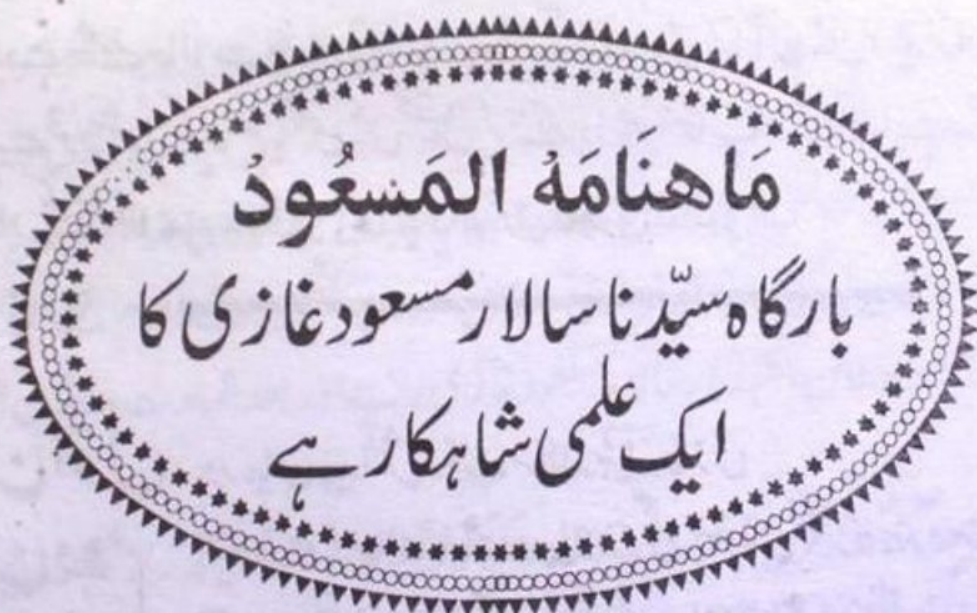 مَاهنَامَهْ المَسعُودْ
بارگاہ سیّدنا سالار مسعود غازی کا
ایک علمی شاہکار ہے